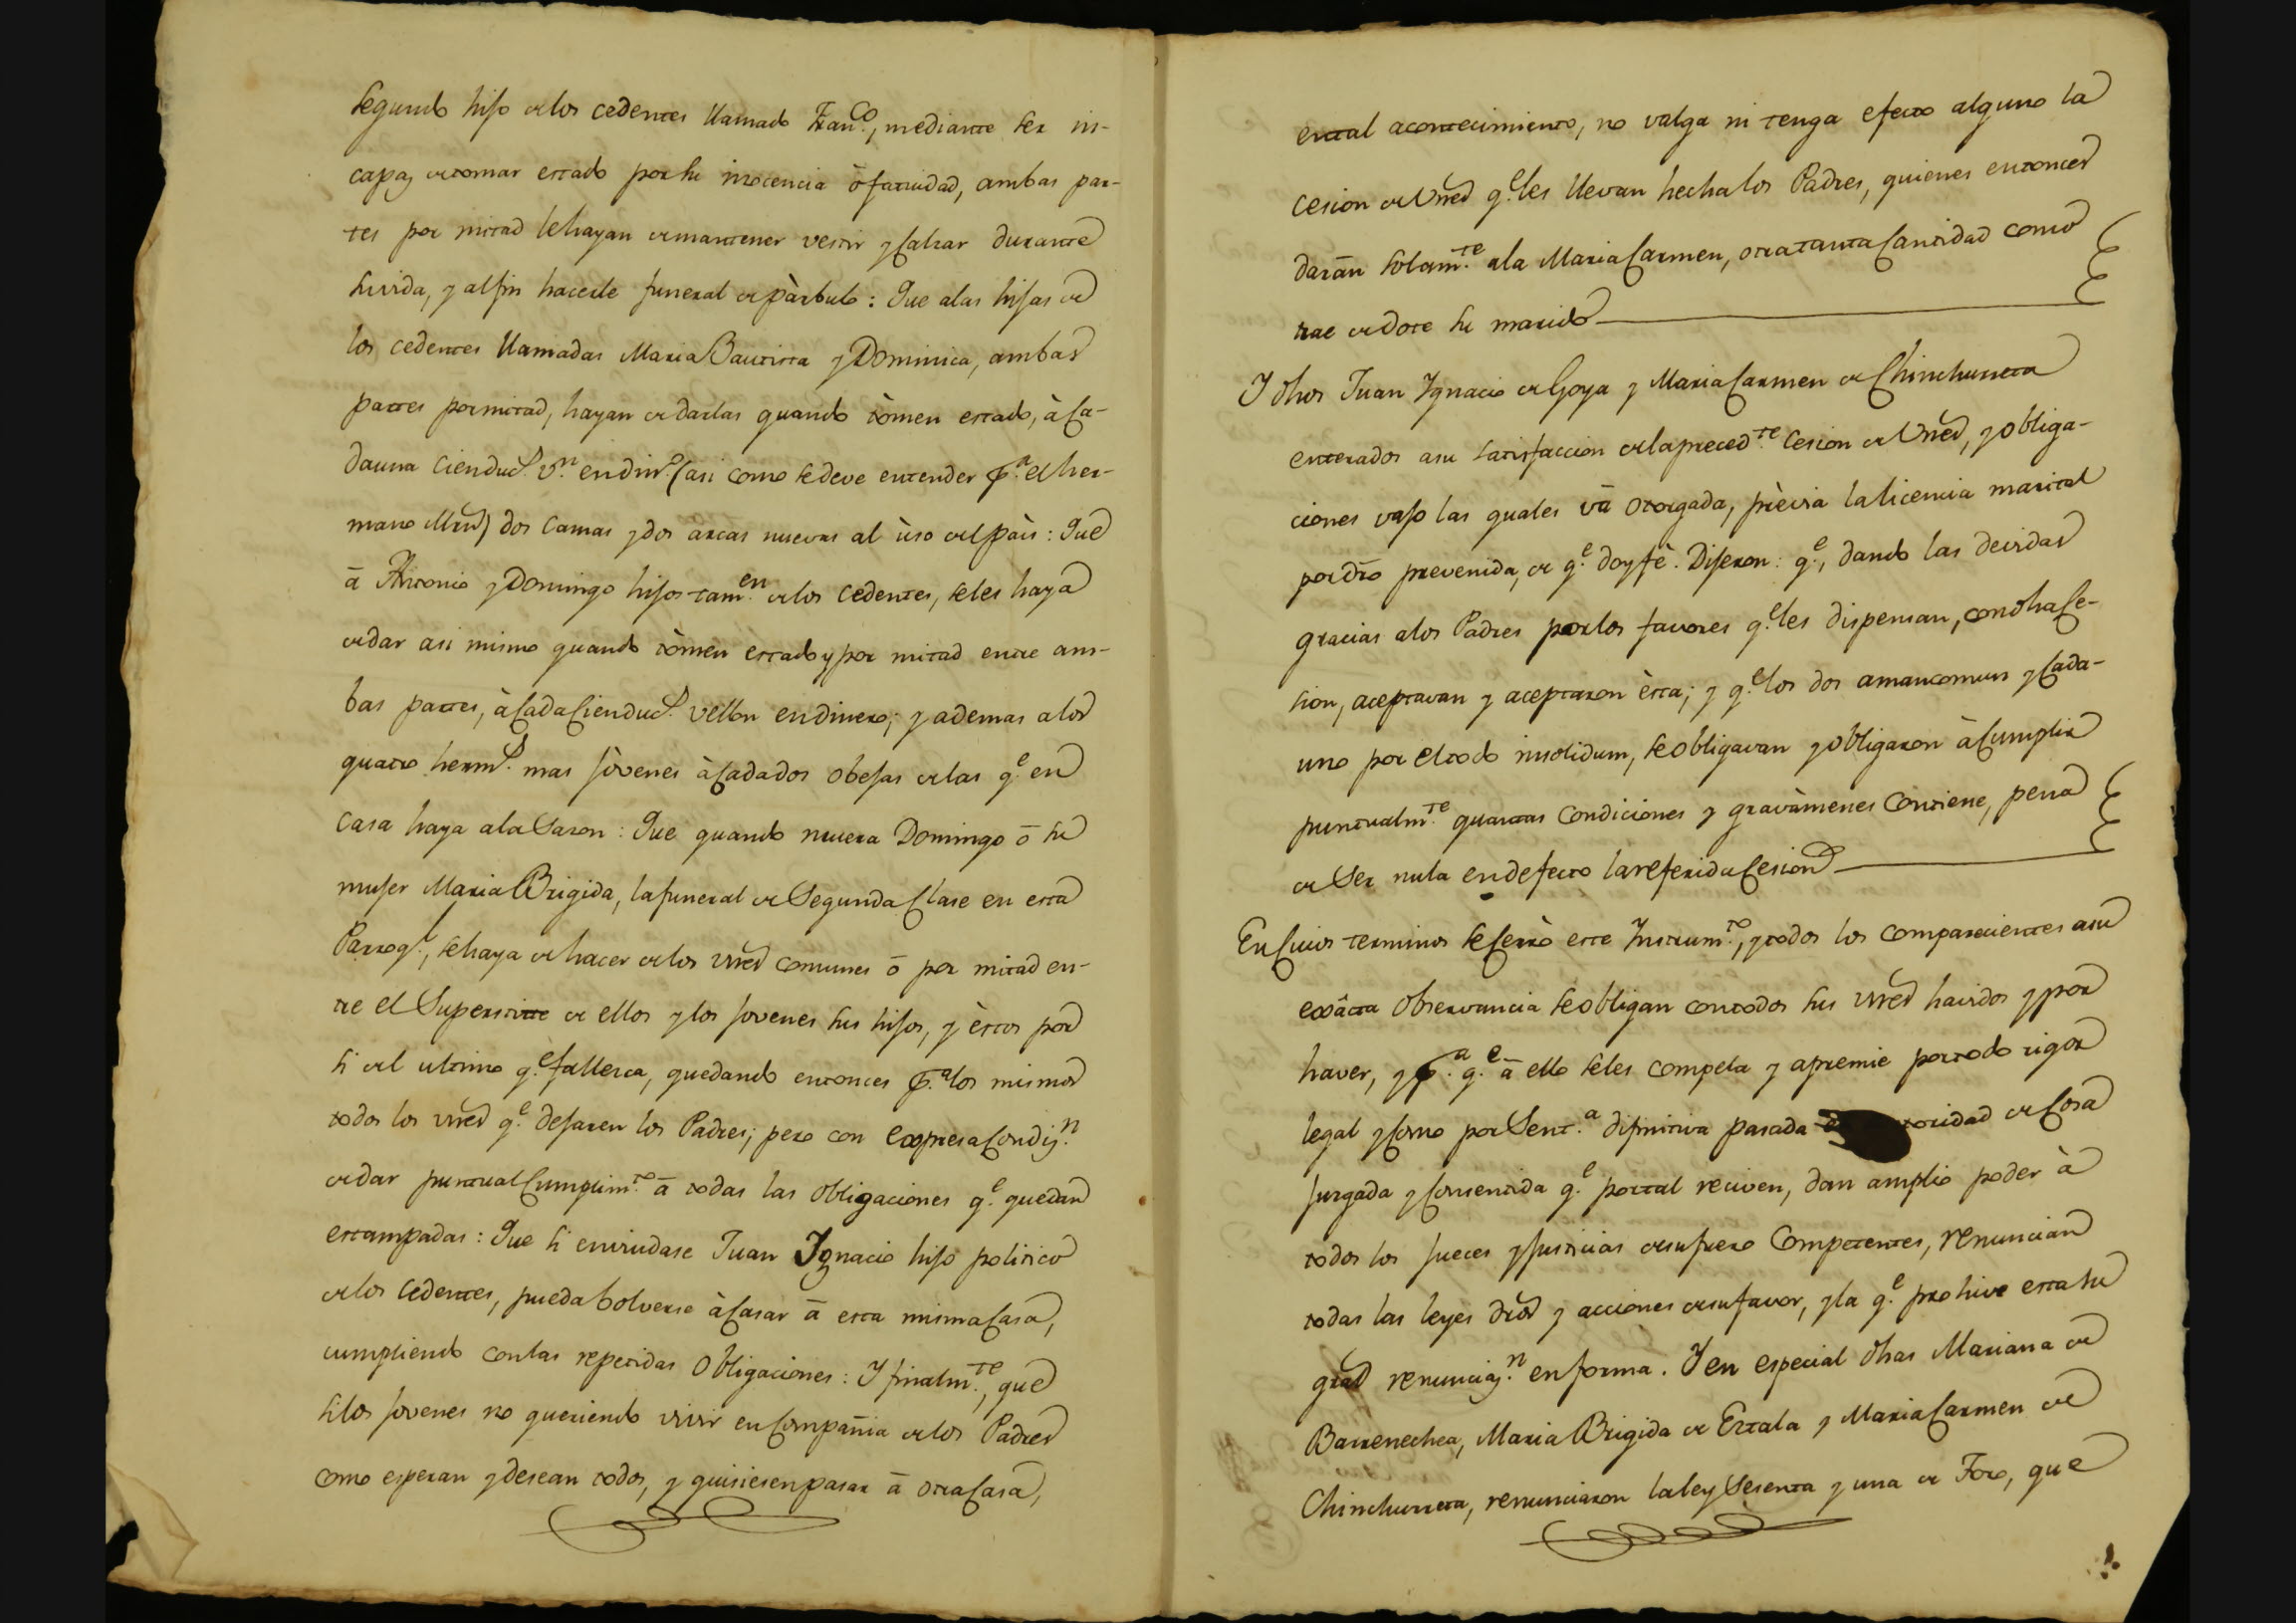 segundo hijo de los cedentes llamado Fran.co, mediante ser in-
capaz de tomar estado por su inocencia ò fatuidad, ambas par-
tes por mitad le hayan de mantener vestir y Calzar durante
su vida, y al fin hacerle funeral de pàrbulo: Que a las hijas de
los cedentes llamadas Maria Bautista y Dominica, ambas
partes por mitad, hayan de darlas quando tòmen estado, à Ca-
da una cien duc.s v.n en din.o (asi como se deve entender p.a el her-
mano ) dos Camas y dos arcas nuevas al ùso del pàis: Que
à Antonio y Domingo hijos tam.en de los Cedentes, se les haya
de dar asi mismo quando tòmen estado y por mitad entre am-
bas partes, à Cada Cien duc.s vellon en dinero; y ademas a los
quatro herm.s mas jòvenes à Cada dos obejas de las q.e en
Casa haya a la Sazon: Que quando muera Domingo ò su
mujer Maria Brigida, la funeral de Segunda Clase en esta
Parroq.l, se haya de hacer de los vnes comunes ò por mitad en-
tre el Superstite de ellos y los jovenes sus hijos, y èstos por
si del ultimo q.e fallezca, quedando entonces p.a los mismos
todos los vnes q.e dejaren los Padres; pero con expresa Condiz.n
de dar puntual Cumplim.to à todas las obligaciones q.e quedan
estampadas: Que si enviudase Juan Ygnacio hijo politico
de los Cedentes, pueda bolverse à Casar à esta misma Casa,
cumpliendo con las repetidas obligaciones: Y finalm.te, que
si los jovenes no queriendo vivir en Compañia de los Padres
como esperan y desean todos, y quisiesen pasar à otra Casa,
en tal acontecimiento, no valga ni tenga efecto alguno la
Cesion de Vnes q.e les llevan hecha los Padres, quienes entonces
daràn solam.te a la Maria Carmen, otra tanta Cantidad como
trae de dote su marido
Y dhos Juan Ygnacio de Goya y Maria Carmen de Chinchurreta
enterados a su satisfaccion de la preced.te Cesion de Vnes, y obliga-
ciones vajo las quales và otorgada, prèvia la licencia marital
por dro prevenida, de q.e doy fè. Dijeron: q.e, dando las devidas
gracias a los Padres por los favores q.e les dispensan, con dha Ce-
sion, aceptavan y aceptaron èsta; y q.e los dos a mancomun y Cada-
uno por el todo insolidum, se obligavan y obligaron à Cumplir
puntualm.te quantas Condiciones y gravàmenes Contiene, pena
de Ser nula en defecto la referida Cesion
En Cuios terminos se Cerrò este Instrum.to, y todos los comparecientes a su
exâcta observancia se obligan con todos sus vnes havidos y por
haver, y p.a q.e à ello se les compela y apremie por todo rigor
legal y Como por Sent.a difinitiva pasada toridad de Cosa
juzgada y Consentida q.e por tal reciven, dan amplio poder à
todos los jueces y justicias de su fuero Competentes, renuncian
todas las leyes dros y acciones de su favor, y la q.e prohive esta su
gral renunciaz.n en forma. Y en especial dhas Mariana de
Barrenechea, Maria Brigida de Estala y Maria Carmen de
Chinchurreta, renunciaron la ley Sesenta y una de Toro, que